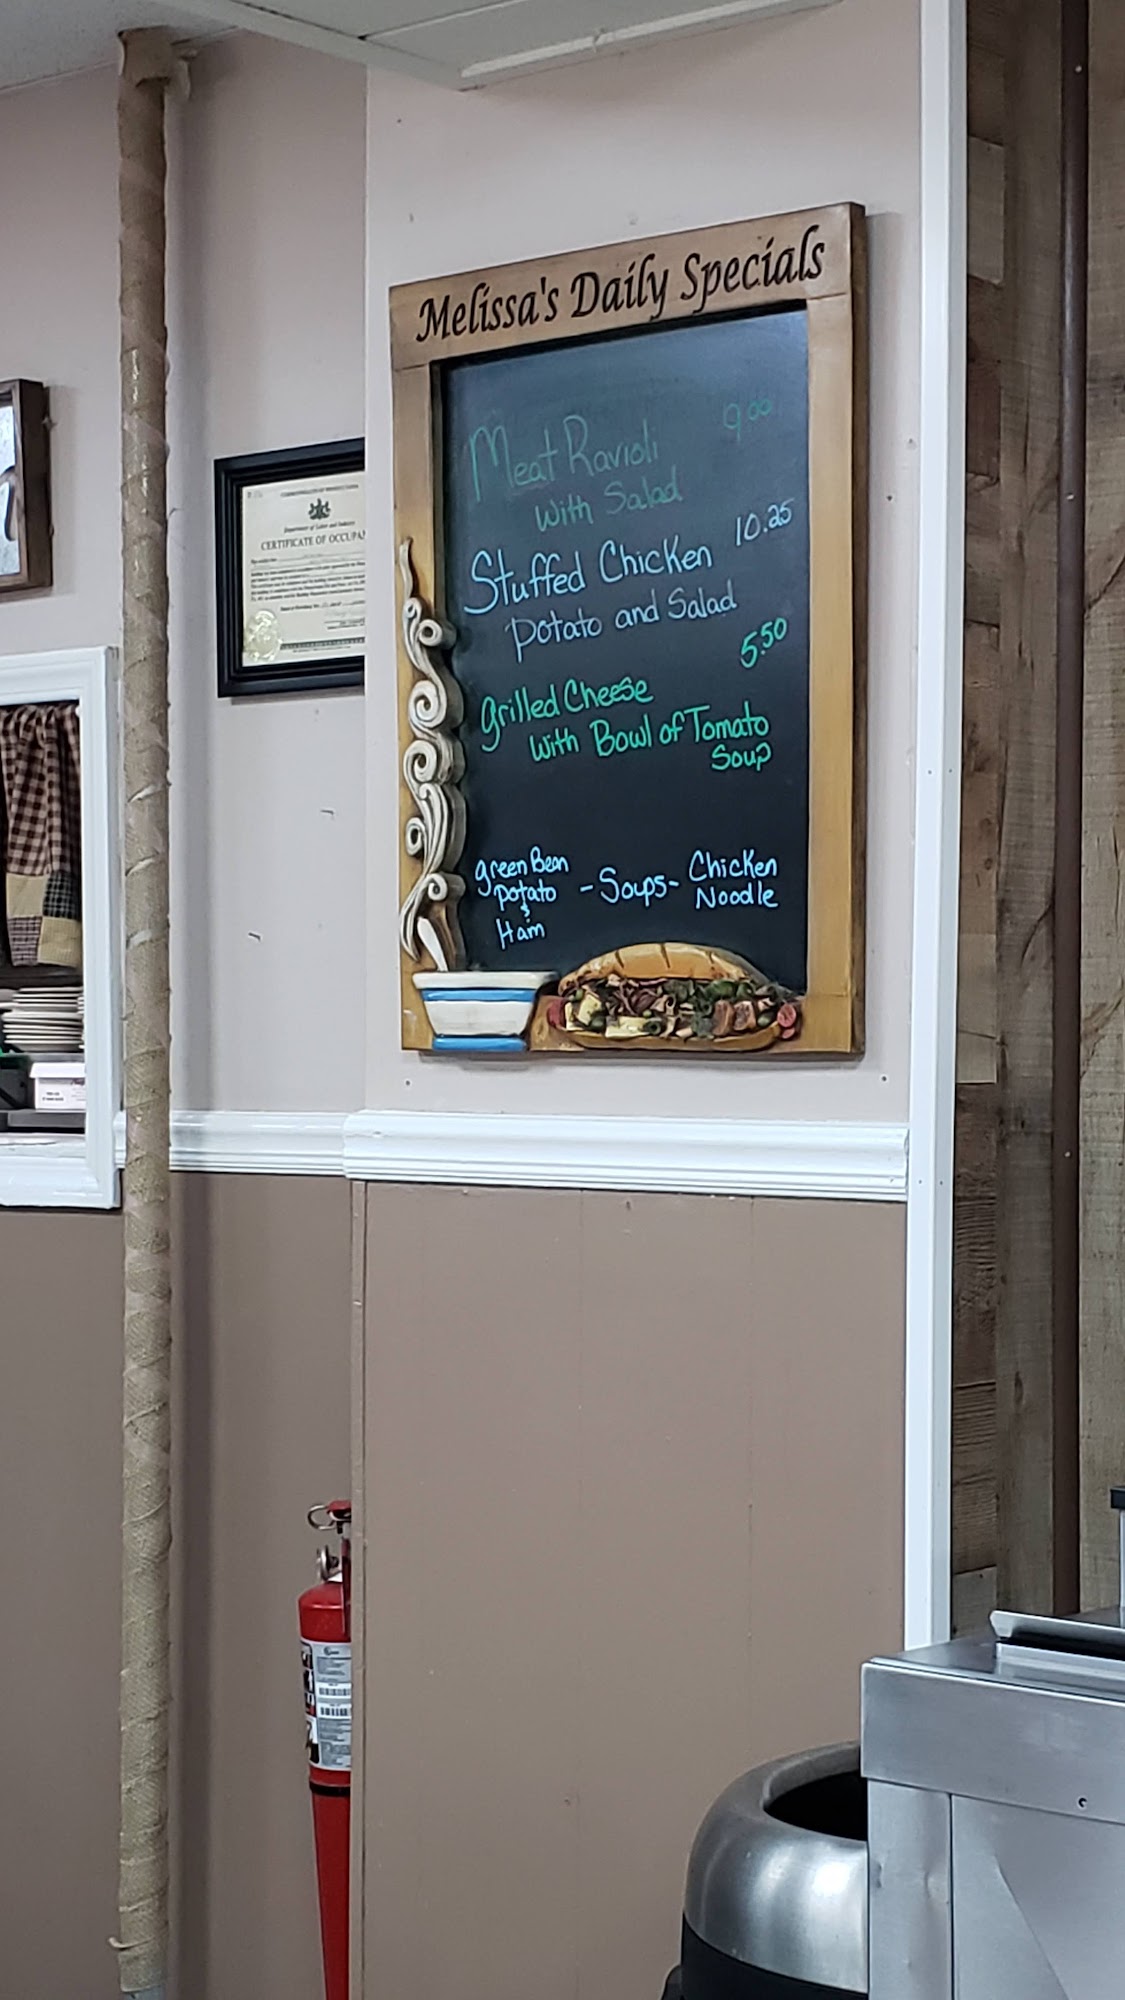 Melissa's Daily Specials
Meat Ravioli 9.00
With Salad
Stuffed Chicken 10.25
Potato and Salad
5.50
Grilled Cheese
With Bowl of Tomato
Soup
Green Bean
Potato
&
Ham
-Soups-
Chicken
Noodle
Department of Labor and Industry
CERTIFICATE OF OCCUPAN